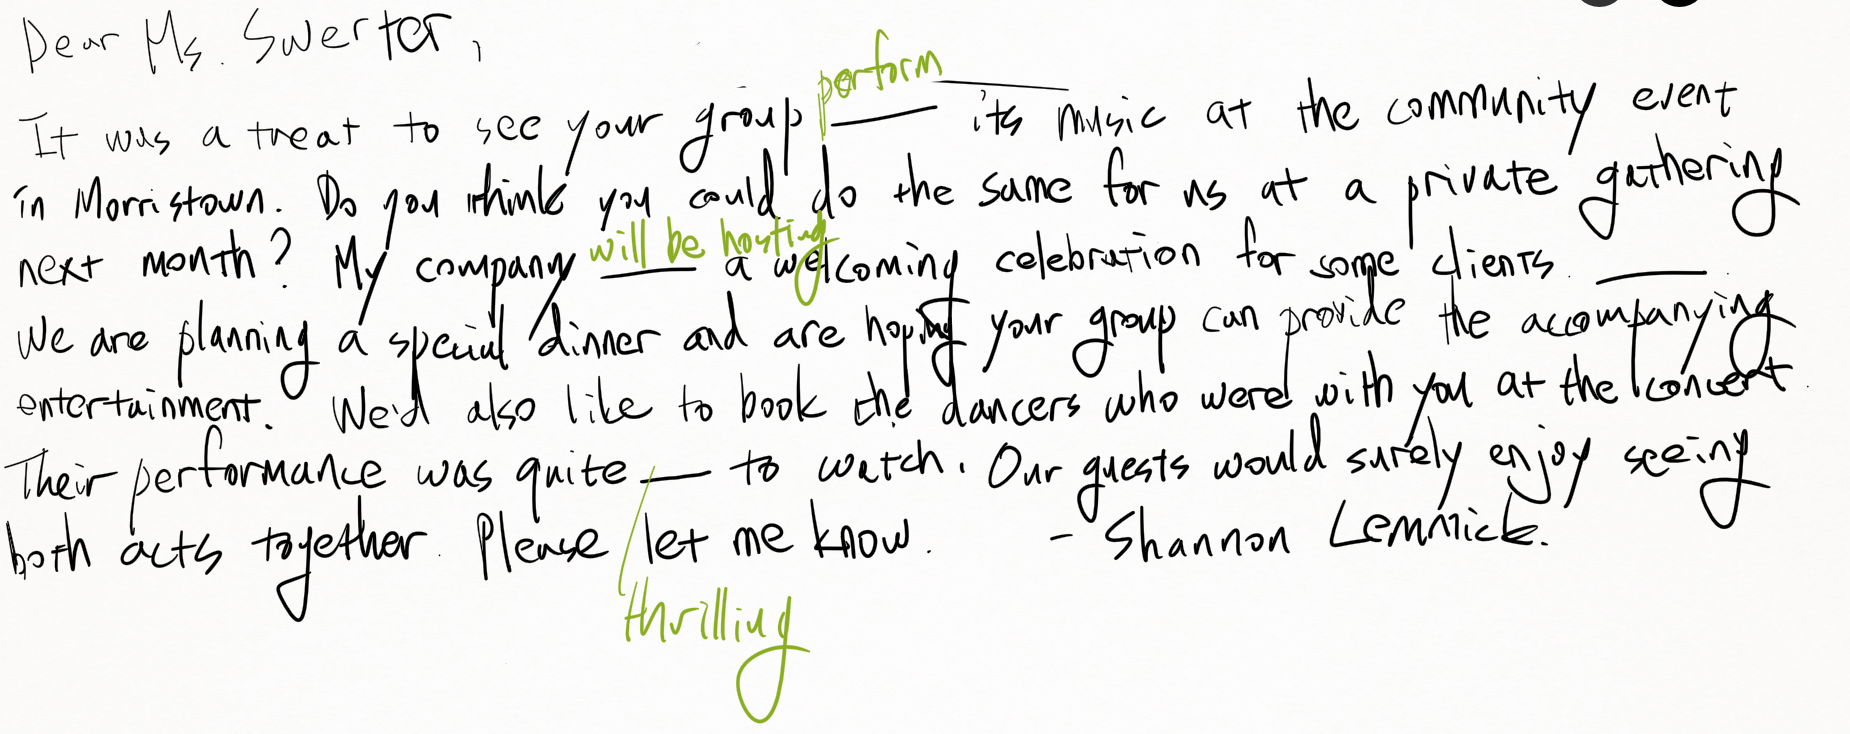 Dear Ms. Swerter,
perform
It was a treat to see your group ____ its music at the community event
in Morristown. Do you think you could do the same for us at a private gathering
will be hosting
next month? My company ____ a welcoming celebration for some clients. ____.
We are planning a special dinner and are hoping your group can provide the accompanying
entertainment. We'd also like to book the dancers who were with you at the concert.
Their performance was quite ____ to watch. Our guests would surely enjoy seeing
both acts together. Please let me know. - Shannon Lemmick.
thrilling